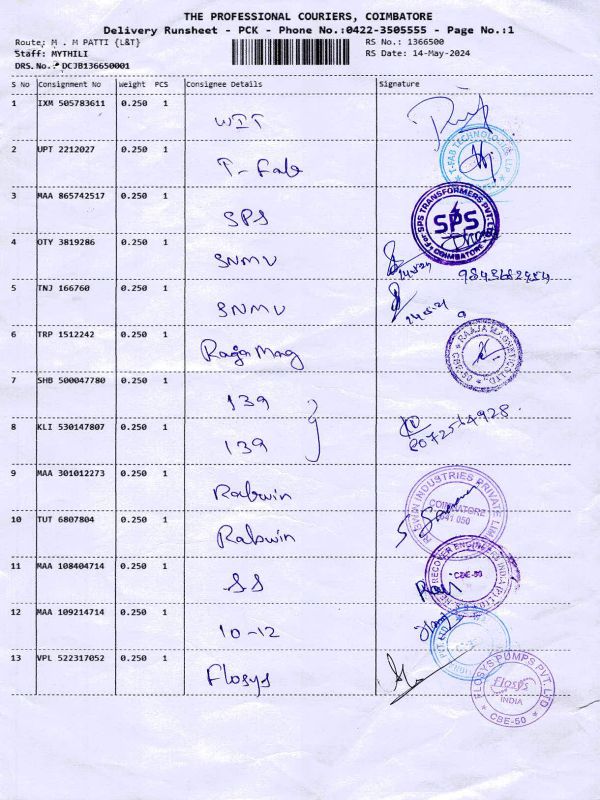 THE PROFESSIONAL COURIERS, COIMBATORE
Delivery Runsheet - PCK - Phone No.:0422-3505555 - Page No.:1
Route: M . M PATTI {L&T} RS No.: 1366500
Staff: MYTHILI RS Date: 14-May-2024
DRS.No.: DCJB136650001
S No Consignment No Weight PCS Consignee Details Signature
1 IXM 505783611 0.250 1
WIT
2 UPT 2212027 0.250 1
T-Fab T-FAB TECHNOLOGIES LLP
3 MAA 865742517 0.250 1
SPS For SPS TRANSFORMERS PVT. LTD SPS COIMBATORE
4 OTY 3819286 0.250 1
SNMV
5 TNJ 166760 0.250 1
SNMV
6 TRP 1512242 0.250 1
Raaja Mag RAAJA MAGNETICS LTD CBE-50
7 SHB 500047780 0.250 1
139
8 KLI 530147807 0.250 1
139
9 MAA 301012273 0.250 1
Rabwin INDUSTRIES PRIVATE LIMITED COIMBATORE 641 050
10 TUT 6807804 0.250 1
Rabwin
11 MAA 108404714 0.250 1
SS RECOVER ENGINEERS INDIA (P) LTD CBE-50
12 MAA 109214714 0.250 1
10-12
13 VPL 522317052 0.250 1
Flosys FLOSYS PUMPS PVT. LTD Flosys INDIA CBE-50